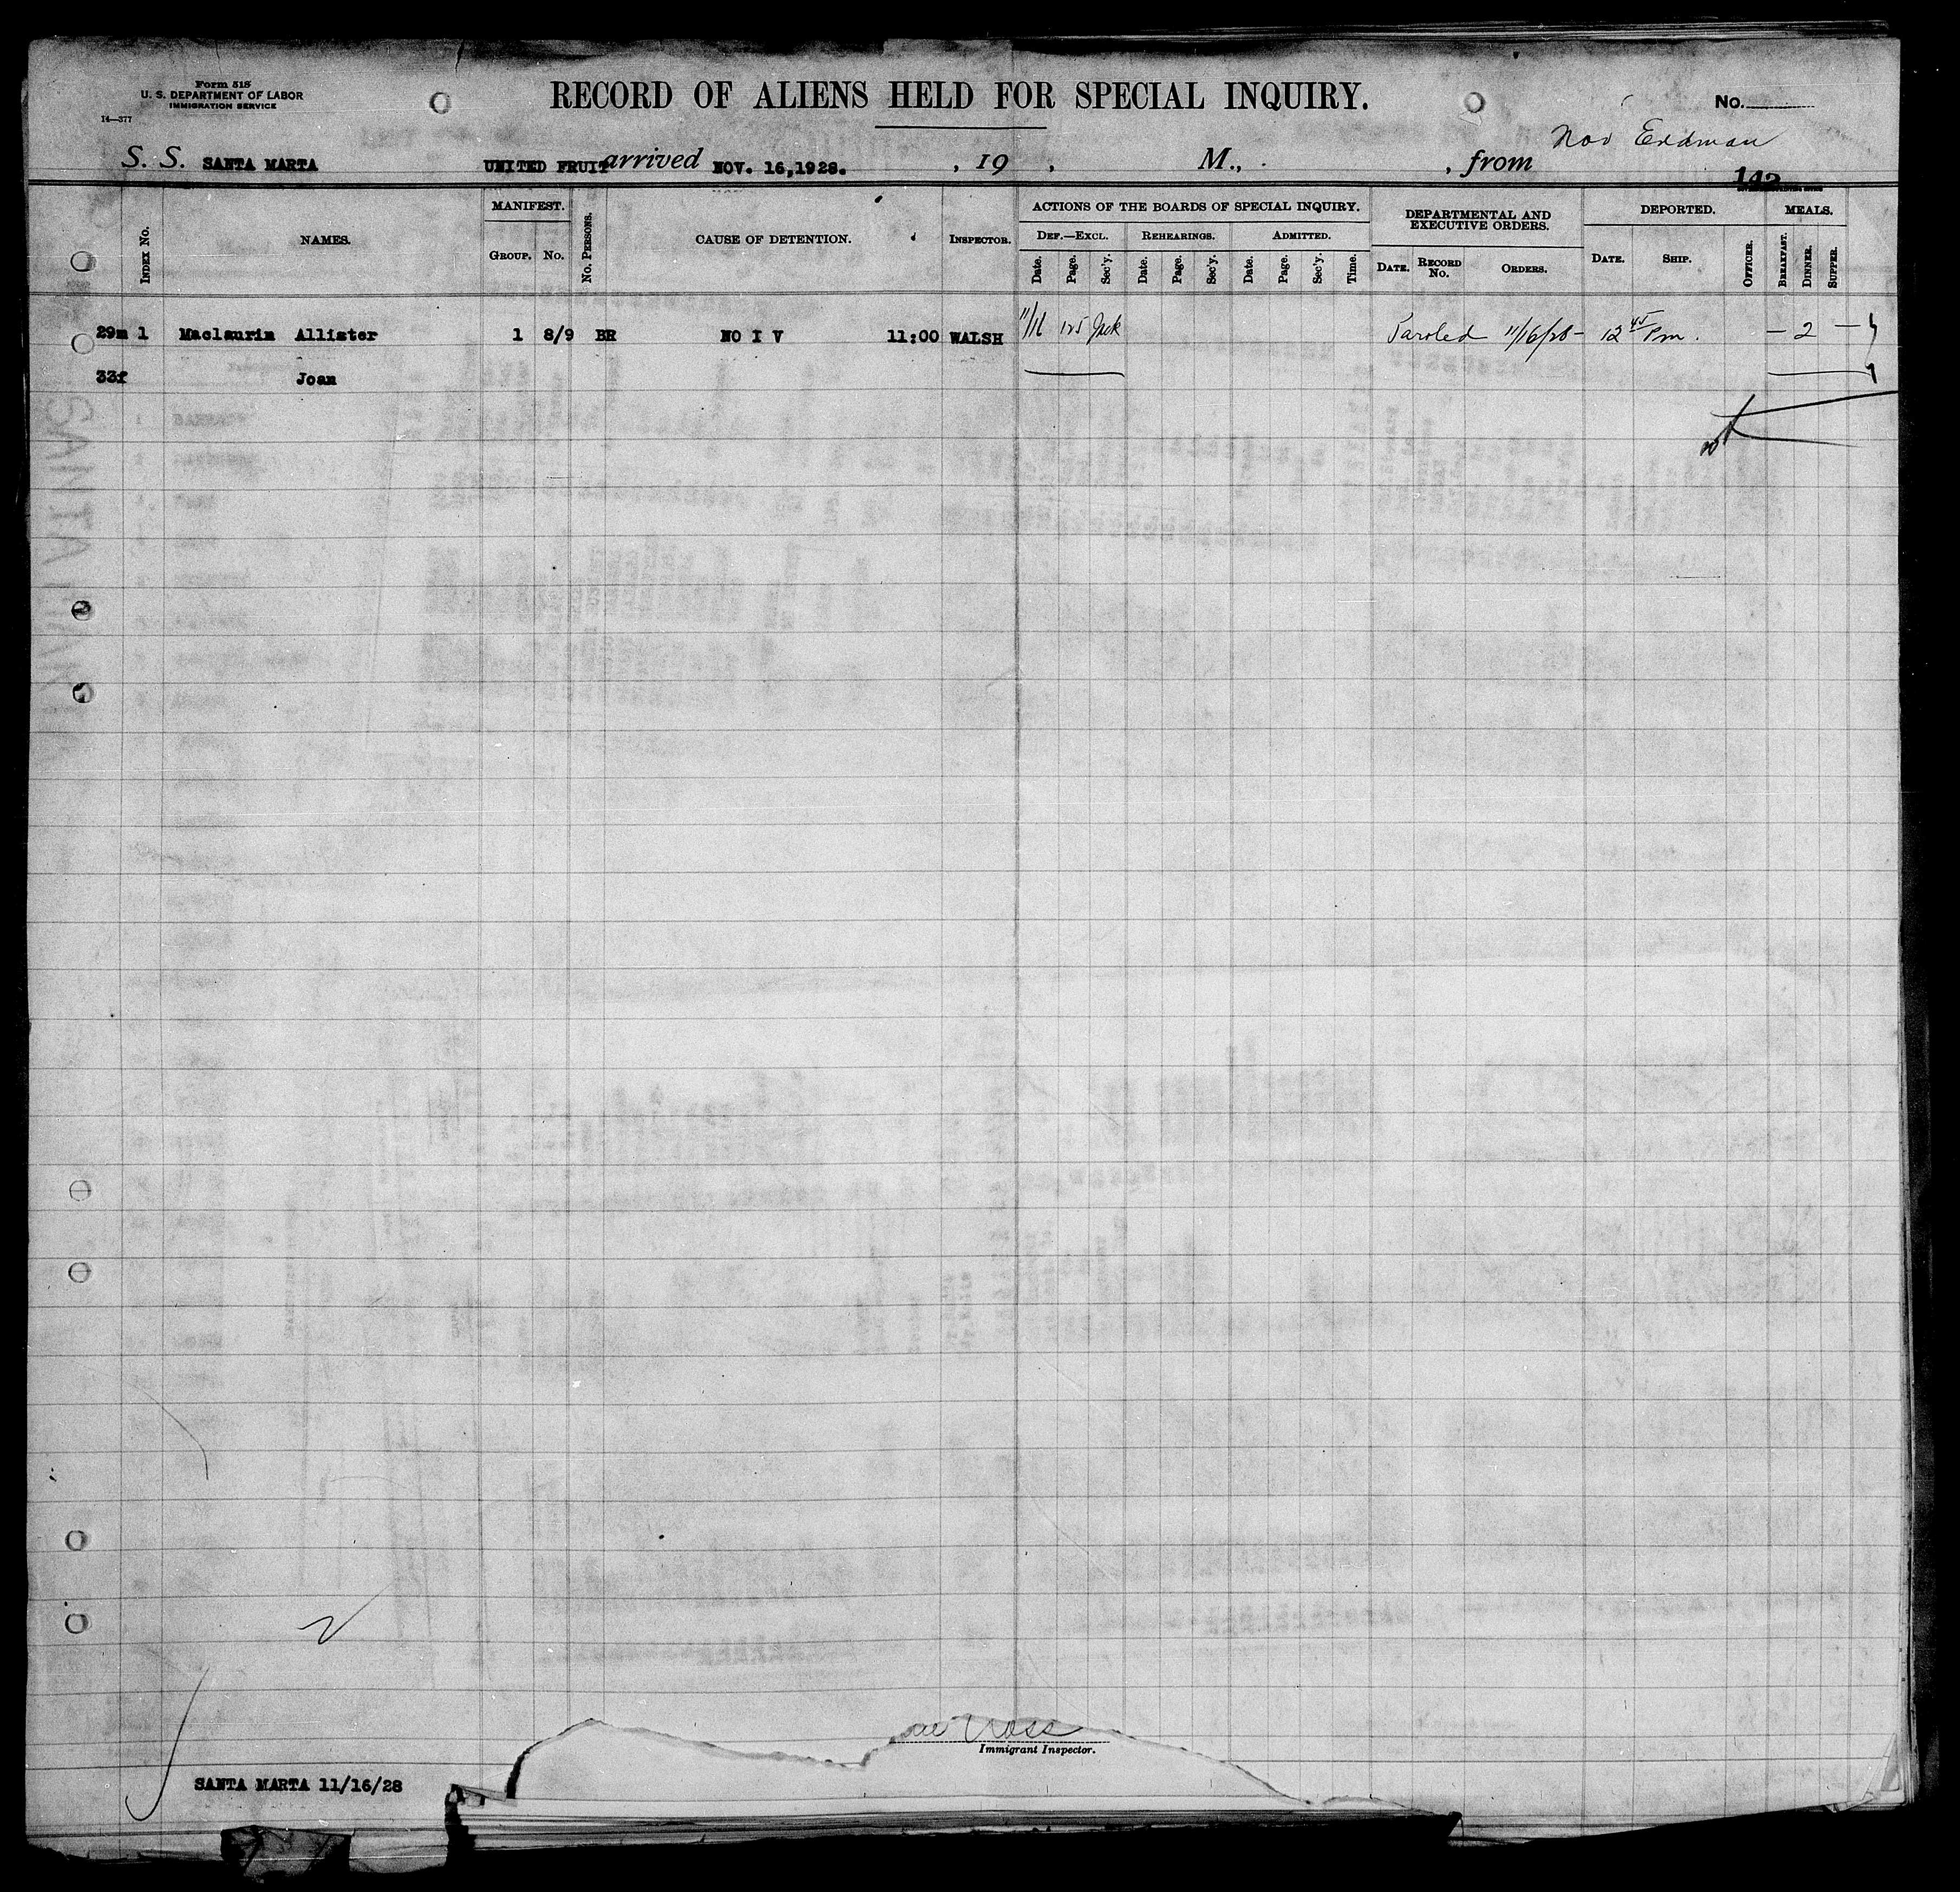 Form 518
U. S. DEPARTMENT OF LABOR
IMMIGRATION SERVICE
14—377
RECORD OF ALIENS HELD FOR SPECIAL INQUIRY.
No.
S. S. SANTA MARTA UNITED FRUIT arrived NOV. 16,1928. , 19 , M., , from
Erdman
142
INDEX No.
NAMES.
MANIFEST.
GROUP. No.
No. PERSONS.
CAUSE OF DETENTION.
INSPECTOR.
ACTIONS OF THE BOARDS OF SPECIAL INQUIRY.
DEF.—EXCL. REHEARINGS. ADMITTED.
Date. Page. Sec'y. Date. Page. Sec'y. Date. Page. Sec'y. Time.
DEPARTMENTAL AND
EXECUTIVE ORDERS.
DATE. RECORD No. ORDERS.
DEPORTED.
DATE. SHIP. OFFICER.
MEALS.
BREAKFAST. DINNER. SUPPER.
29m 1 Maclaurin Allister 1 8/9 BR NO I V 11:00 WALSH 11/16 125 Paroled 11/16/28 - 12 45 Pm. — 2 —
33f Joan
Immigrant Inspector.
SANTA MARTA 11/16/28